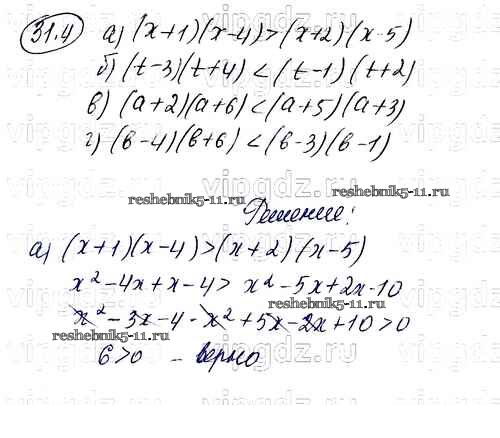 31.4 а) (x+1)(x-4)>(x+2)(x-5)
б) (t-3)(t+4)<(t-1)(t+2)
в) (a+2)(a+6)<(a+5)(a+3)
г) (в-4)(в+6)<(в-3)(в-1)
reshebnik5-11.ru reshebnik5-11.ru
Решение:
а) (x+1)(x-4)>(x+2)(x-5)
x²-4x+x-4> x²-5x+2x-10
reshebnik5-11.ru
x²-3x-4-x²+5x-2x+10>0
reshebnik5-11.ru
6>0 - верно